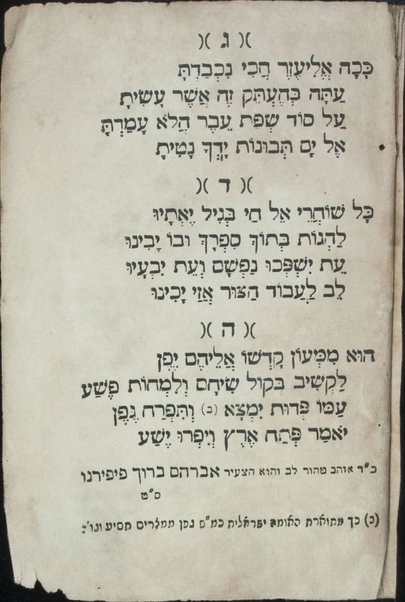 )( ג )(
כָּכָה אֱלִיעֶזֶר הֲכִי נִכְבַּדְתָּ
עַתָּה בְּהֶעְתֵּק זֶה אֲשֶׁר עָשִׂיתָ
עַל סוֹד שְׂפַת עֵבֶר הֲלֹא עָמַדְתָּ
אֶל יָם תְּבוּנוֹת יָדְךָ נָטִיתָ
)( ד )(
כָּל שׁוֹחֲרֵי אֵל חַי בְּגִיל יֶאֱתָיוּ
לַהְגּוֹת בְּתוֹךְ סִפְרָךְ וּבוֹ יָבִינוּ
עֵת יִשְׁפְּכוּ נַפְשָׁם וְעֵת יִבְעָיוּ
לֵב לַעֲבוֹד הַצּוּר אֲזַי יָכִינוּ
)( ה )(
הוּא מִמְּעוֹן קָדְשׁוֹ אֲלֵיהֶם יִפֶן
לַקְשִׁיב בְּקוֹל שִׂיחָם וְלִמְחוֹת פֶּשַׁע
עַמּוֹ פְּדוּת יִמְצָא (כ) וְתִפְרַח גֶּפֶן
יֹאמַר פְּתַח אֶרֶץ וְיִפְרוּ יֶשַׁע
כ״ד אוהב טהור לב והוא הצעיר אברהם ברוך פיפירנו
ס״ט
(כ) כך מתוארת האומה ישראלית כמ״ש גפן ממצרים תסיע וגו׳: